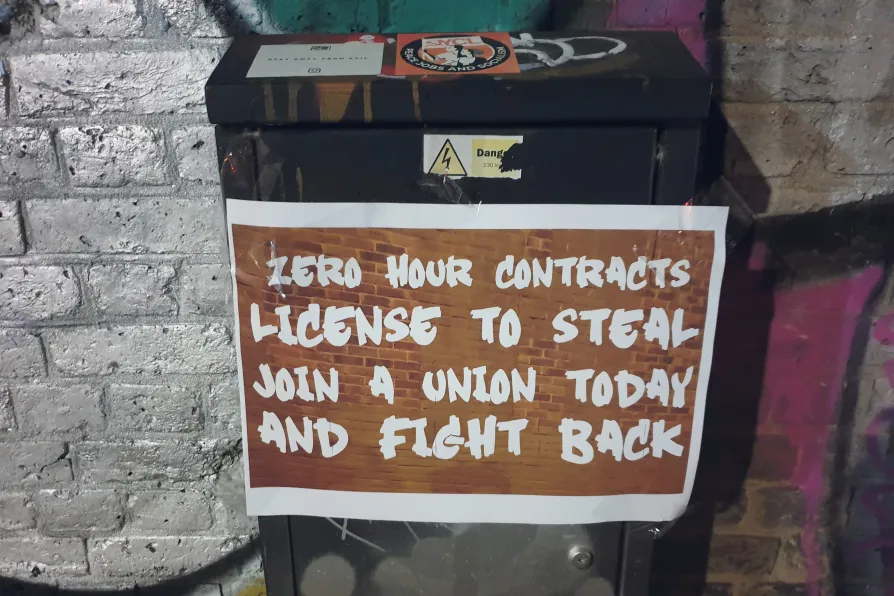 PEACE JOBS AND SOCIALISM
Dang
ZERO HOUR CONTRACTS
LICENSE TO STEAL
JOIN A UNION TODAY
AND FIGHT BACK